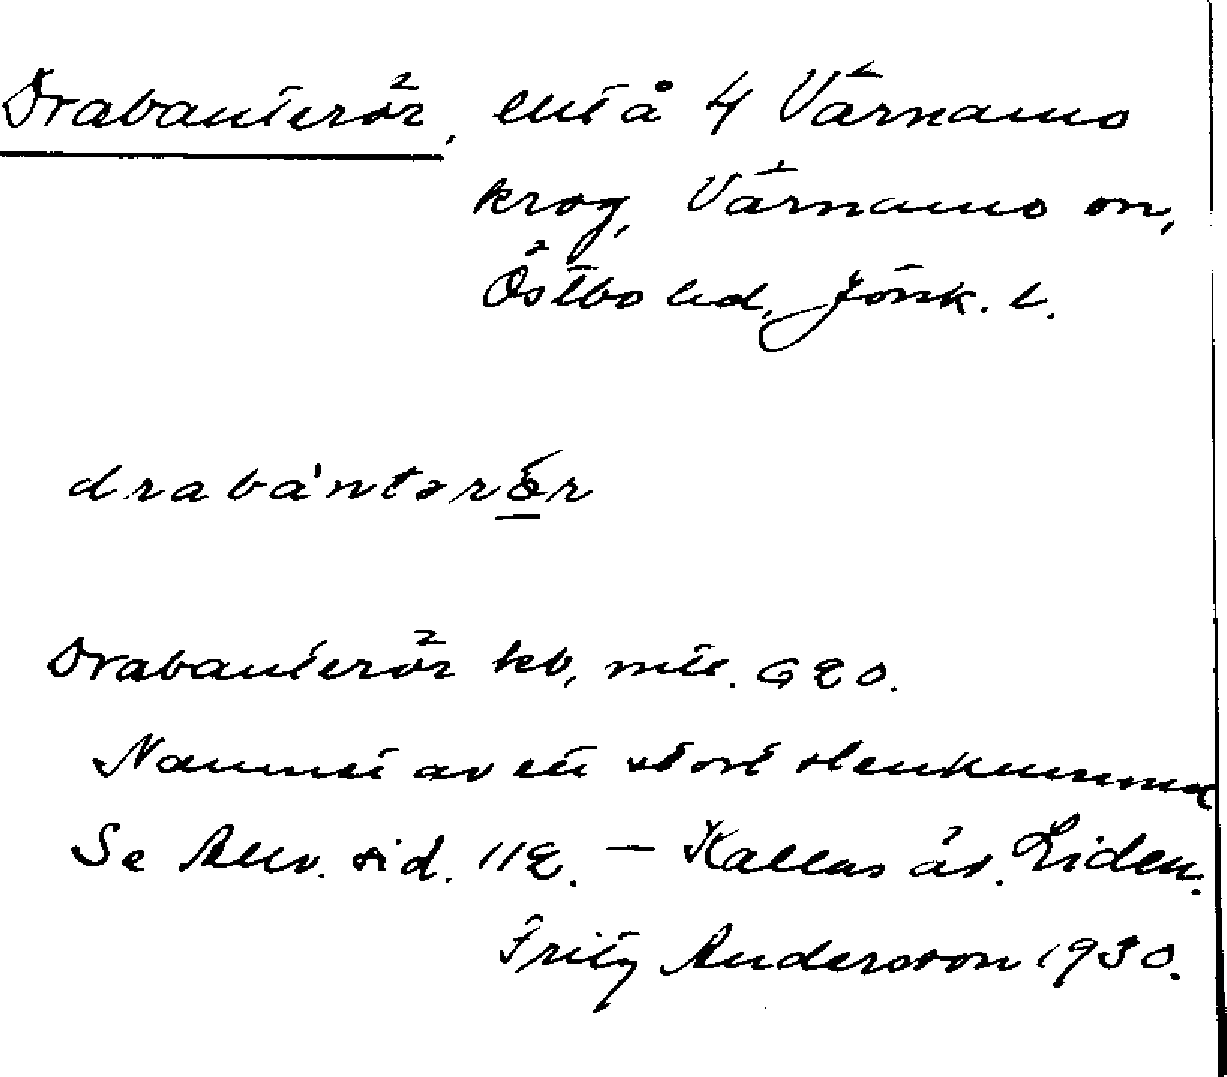 Drabanterör, ent å 4 Värnamo
krog, Värnamo sn,
Östbo hd, Jönk. l.
drabántərör
Drabanterör kb, mtl. 920.
Namnet av ett stort stenkummel
Se Allv. sid. 112. — Kallas äv. Liden.
Fritz Andersson 1930.